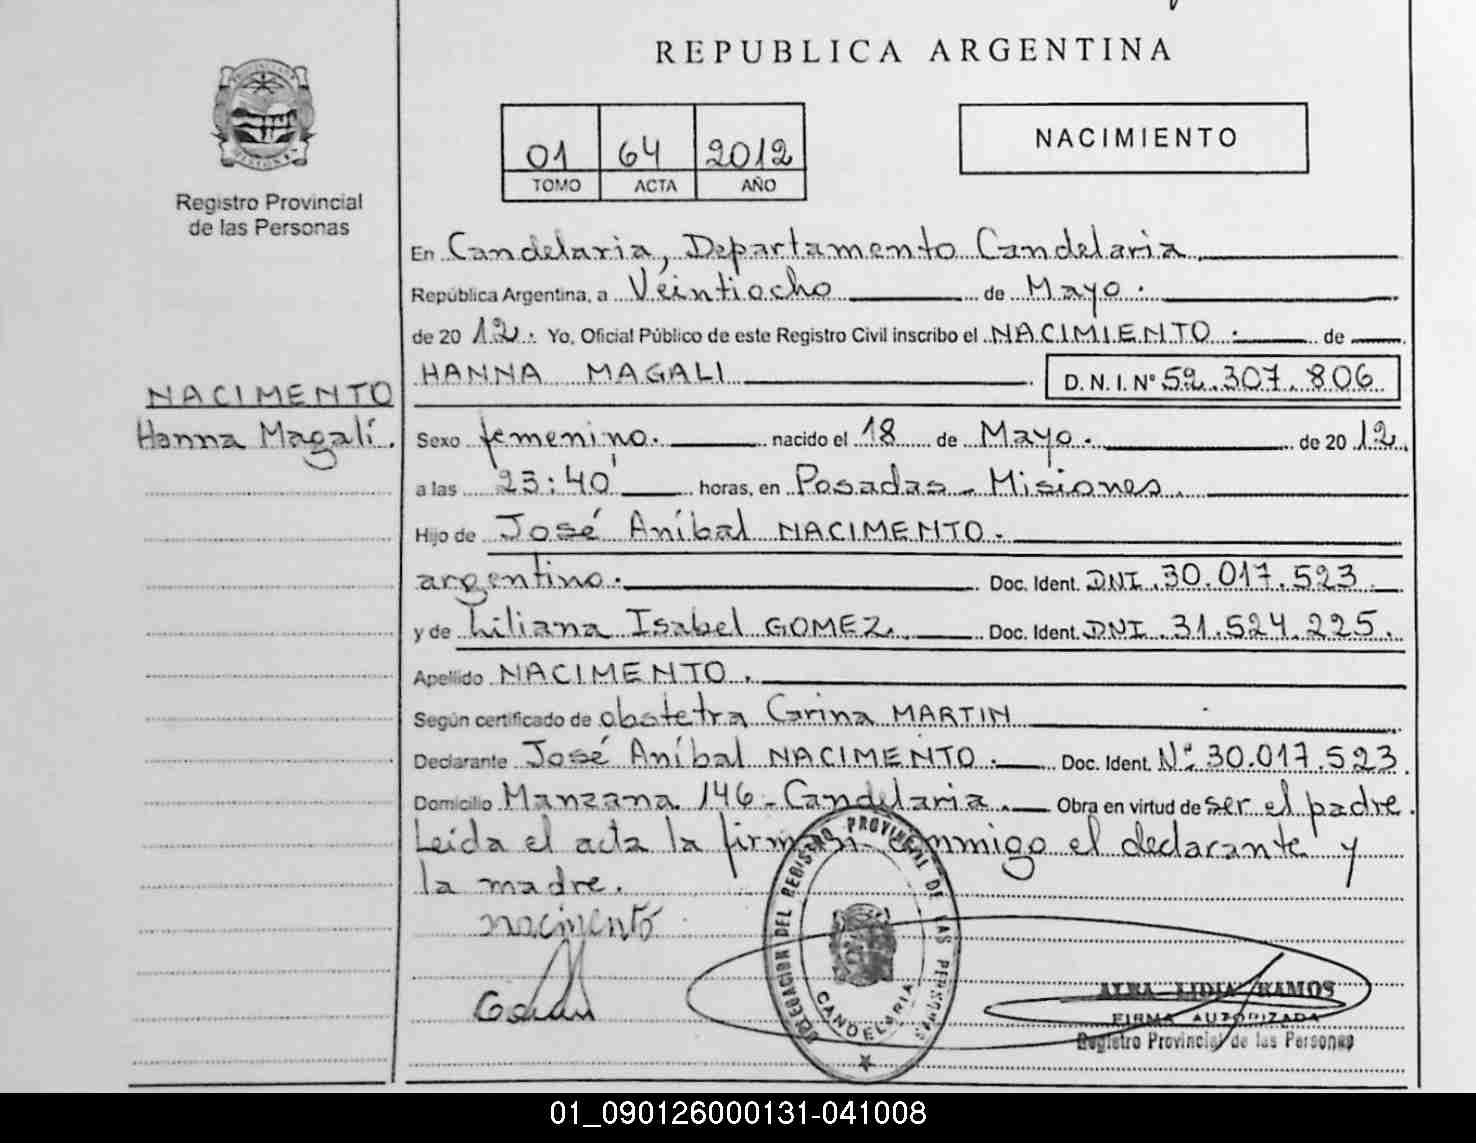 REPUBLICA ARGENTINA
01 64 2012
TOMO ACTA AÑO
NACIMIENTO
Registro Provincial
de las Personas
NACIMENTO
Hanna Magalí.
En Candelaria, Departamento Candelaria
República Argentina, a Veintiocho de Mayo.
de 2012. Yo, Oficial Público de este Registro Civil inscribo el NACIMIENTO. de
HANNA MAGALI D.N.I. Nº 52.307.806
Sexo femenino. nacido el 18 de Mayo. de 2012.
a las 23:40' horas, en Posadas - Misiones.
Hijo de José Aníbal NACIMENTO.
argentino. Doc. Ident. DNI.30.017.523.
y de Liliana Isabel GOMEZ. Doc. Ident. DNI.31.524.225.
Apellido NACIMENTO.
Según certificado de obstetra Carina MARTIN
Declarante José Aníbal NACIMENTO. Doc. Ident. Nº 30.017.523.
Domicilio Manzana 146 - Candelaria. Obra en virtud de ser el padre.
Leída el acta la firman conmigo el declarante y
la madre.
nacimento
DELEGACION DEL REGISTRO PROVINCIAL DE LAS PERSONAS
CANDELARIA
ALBA LIDIA RAMOS
FIRMA AUTORIZADA
Registro Provincial de las Personas
01_090126000131-041008